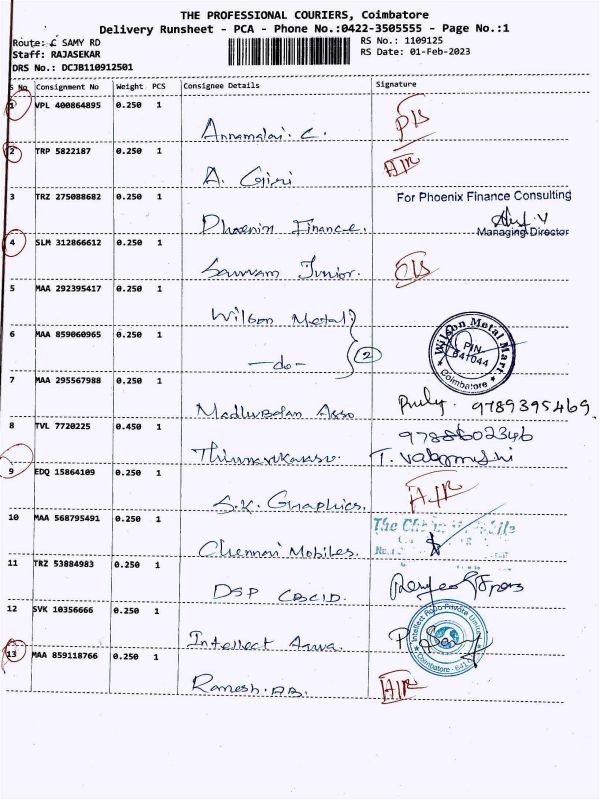 THE PROFESSIONAL COURIERS, Coimbatore
Delivery Runsheet - PCA - Phone No.:0422-3505555 - Page No.:1
Route: C SAMY RD
RS No.: 1109125
Staff: RAJASEKAR
RS Date: 01-Feb-2023
DRS No.: DCJB110912501
S No Consignment No Weight PCS Consignee Details Signature
1 VPL 400864895 0.250 1
Annamalai. C.
2 TRP 5822187 0.250 1
A. Giri
A/R
3 TRZ 275088682 0.250 1
For Phoenix Finance Consulting
Phoenix Finance.
Managing Director
4 SLM 312866612 0.250 1
Junior.
5 MAA 292395417 0.250 1
Wilson Metal
6 MAA 859060965 0.250 1
-do- 2
Wilson Metal Mart
PIN
641044
Coimbatore
7 MAA 295567988 0.250 1
Asso
9789395469
8 TVL 7720225 0.450 1
9788602346
T.
9 EDQ 15864109 0.250 1
S.K. Graphics.
A/R
10 MAA 568795491 0.250 1
Chennai Mobiles.
11 TRZ 53884983 0.250 1
DSP CBCID.
12 SVK 10356666 0.250 1
Intellect
Coimbatore
13 MAA 859118766 0.250 1
Ramesh.
A/R